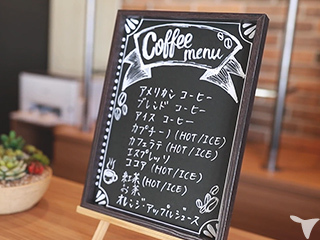 Coffee
menu
アメリカン コーヒー
ブレンド コーヒー
アイス コーヒー
カプチーノ (HOT/ICE)
カフェラテ (HOT/ICE)
エスプレッソ
ココア (HOT/ICE)
紅茶 (HOT/ICE)
お茶
オレンジ・アップルジュース